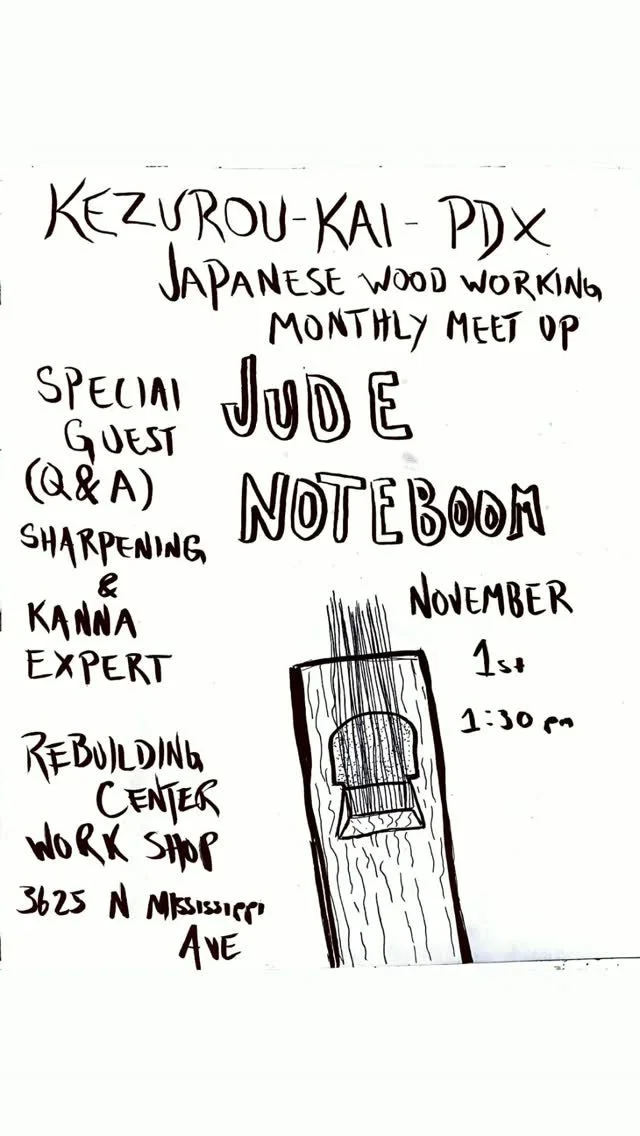 KEZUROU-KAI-PDX
JAPANESE WOOD WORKING
MONTHLY MEET UP
SPECIAL
GUEST
(Q&A)
SHARPENING
&
KANNA
EXPERT
JUDE
NOTEBOOM
NOVEMBER
1st
1:30 pm
REBUILDING
CENTER
WORK SHOP
3625 N MISSISSIPPI
AVE